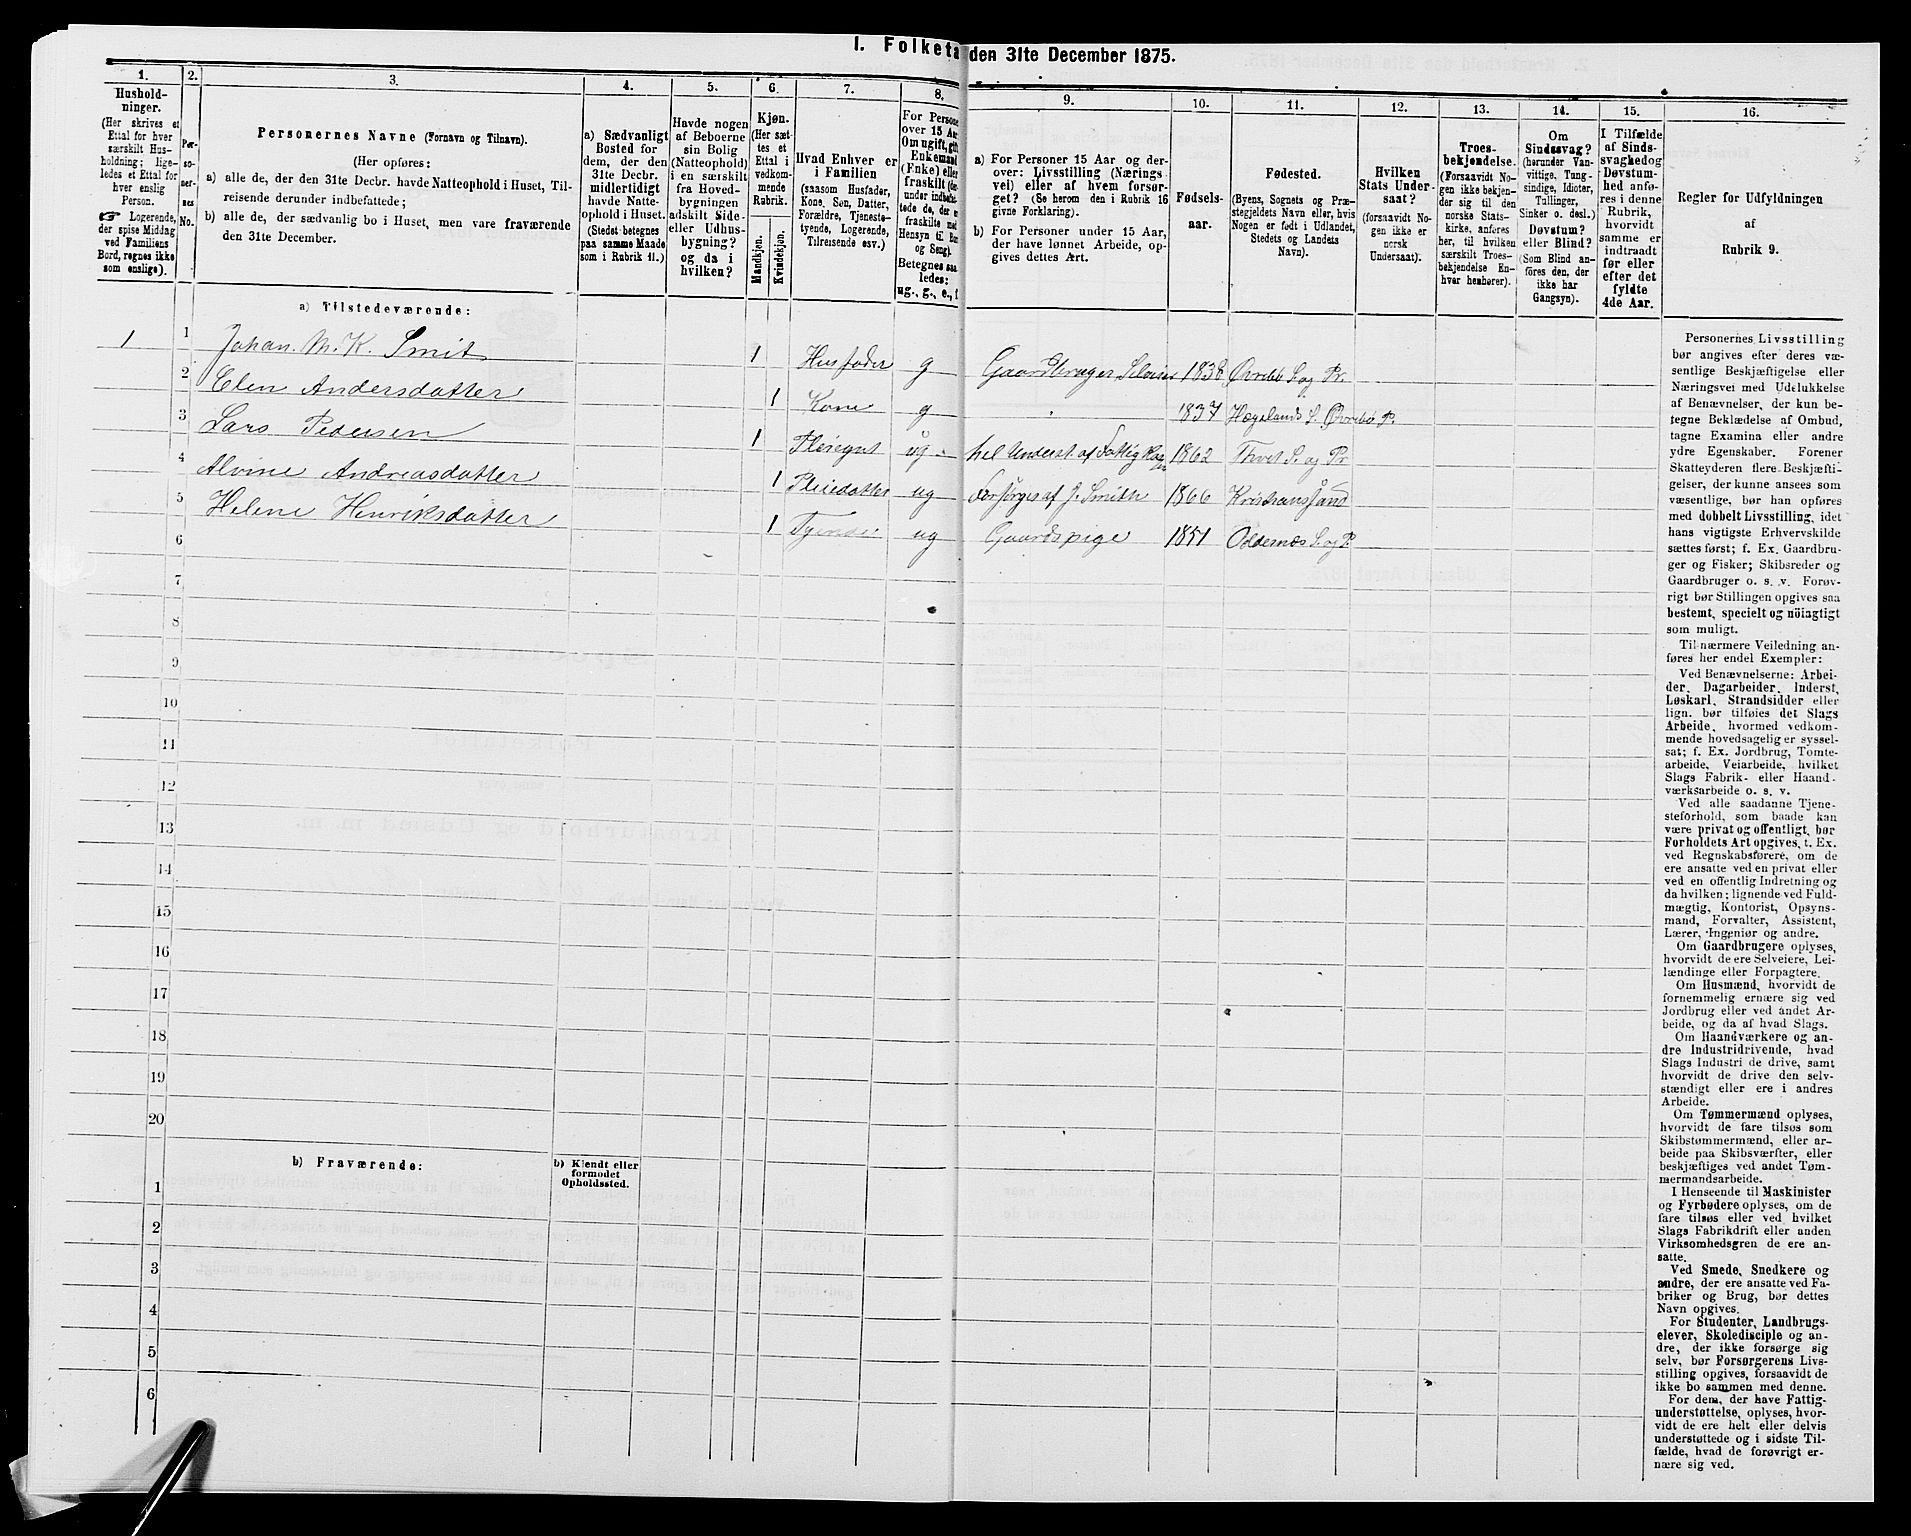 I. Folketæ den 31te December 1875.
1.
Hushold-
ninger.
(Her skrives et
Ettal for hver
særskilt Hus-
holdning; lige-
ledes et Ettal for
hver enslig
Person.
☞ Logerende,
der spise Middag
ved Familiens
Bord, regnes ikke
som enslige).
2.
Per-
so-
ner-
nes
No.
3.
Personernes Navne (Fornavn og Tilnavn).
(Her opføres:
a) alle de, der den 31te Decbr. havde Natteophold i Huset, Til-
reisende derunder indbefattede;
b) alle de, der sædvanlig bo i Huset, men vare fraværende
den 31te December.
4.
a) Sædvanligt
Bosted for
dem, der den
31te Decbr.
midlertidigt
havde Natte-
ophold i Huset.
(Stedet betegnes
paa samme Maade
som i Rubrik 11.)
5.
Havde nogen
af Beboerne
sin Bolig
(Natteophold)
i en særskilt
fra Hoved-
bygningen
adskilt Side-
eller Udhus-
bygning?
og da i
hvilken?
6.
Kjøn.
(Her sæt-
tes et
Ettal i
vedkom-
mende
Rubrik.)
Mandkjøn.
Kvindekjøn.
7.
Hvad Enhver er
i Familien
(saasom Husfader,
Kone, Søn, Datter,
Forældre, Tjeneste-
tyende, Logerende,
Tilreisende osv.)
8.
For Persone
over 15 Aar
Om ugift, gift
Enkemand
(Enke) eller
fraskilt (de
under indbefat-
tede de, der e
fraskilte med
Hensyn til Bo
og Seng).
Betegnes saa
ledes:
ug., g., e., f
9.
a) For Personer 15 Aar og der-
over: Livsstilling (Nærings
vei) eller af hvem forsør-
get? (Se herom den i Rubrik 16
givne Forklaring).
b) For Personer under 15 Aar,
der have lønnet Arbeide, op-
gives dettes Art.
10.
Fødsels-
aar.
11.
Fødested.
(Byens, Sognets og Præ-
stegjeldets Navn eller, hvis
Nogen er født i Udlandet,
Stedets og Landets
Navn).
12.
Hvilken
Stats Under-
saat?
(forsaavidt No-
gen ikke er
norsk
Undersaat).
13.
Troes-
bekjendelse.
(Forsaavidt No-
gen ikke bekjen-
der sig til den
norske Stats-
kirke, anføres
her, til hvilken
særskilt Troes-
bekjendelse En-
hver henhører).
14.
Om
Sindssvag?
(herunder Van-
vittige, Tung-
sindige, Idioter,
Tullinger,
Sinker o. desl.)
Døvstum?
eller Blind?
(Som Blind an-
føres den, der
ikke har
Gangsyn).
15.
I Tilfælde
af Sinds-
svaghedog
Døvstum-
hed anfø-
res i denne
Rubrik,
hvorvidt
samme er
indtraadt
før eller
efter det
fyldte
4de Aar.
16.
Regler for Udfyldningen
af
Rubrik 9.
a) Tilstedeværende:
1 1 Johan. M. K. Smit 1 Husfader g Gaardbruger Selveier 1838 Øvrebö S. og Pr.
2 Elen Andersdatter 1 Kone g 1837 Hægelands S. Øvrebö P.
3 Lars Pedersen 1 Pleiegut ug hel Underst. af Fattigkassen 1862 Thveit S. og Pr
4 Alvine Andreasdatter 1 Pleiedatter ug Forsörges af J. Smith 1866 Kristianssand
5 Helene Henriksdatter 1 Tyende ug Gaardspige 1851 Oddernæs S. og P.
6
7
8
9
10
11
12
13
14
15
16
17
18
19
20
b) Fraværende:
b) Kjendt eller
formodet
Opholdssted.
1
2
3
4
5
6
Personernes Livsstilling
bør angives efter deres væ-
sentlige Beskjæftigelse eller
Næringsvei med Udelukkelse
af Benævnelser, der kun be-
tegne Beklædelse af Ombud,
tagne Examina eller andre
ydre Egenskaber. Forener
Skatteyderen flere Beskjæfti-
gelser, der kunne ansees som
væsentlige, bør han opføres
med dobbelt Livsstilling, idet
hans vigtigste Erhvervskilde
sættes først; f. Ex. Gaardbru-
ger og Fisker; Skibsreder og
Gaardbruger o. s. v. Forøv-
rigt bør Stillingen opgives saa
bestemt, specielt og nöiagtigt
som muligt.
Til nærmere Veiledning an-
føres her endel Exempler:
Ved Benævnelserne: Arbei-
der, Dagarbeider, Inderst,
Løskarl, Strandsidder eller
lign. bør tilføies det Slags
Arbeide, hvormed vedkom-
mende hovedsagelig er syssel-
sat; f. Ex. Jordbrug, Tomte-
arbeide, Veiarbeide, hvilket
Slags Fabrik- eller Haand-
værksarbeide o. s. v.
Ved alle saadanne Tjene-
steforhold, som baade kan
være privat og offentligt, bør
Forholdets Art opgives, t. Ex.
ved Regnskabsførere, om de
ere ansatte ved en privat eller
ved en offentlig Indretning og
da hvilken; lignende ved Fuld-
mægtig, Kontorist, Opsyns-
mand, Forvalter, Assistent,
Lærer, Ingeniør og andre.
Om Gaardbrugere oplyses,
hvorvidt de ere Selveiere, Lei-
lændinge eller Forpagtere.
Om Husmænd, hvorvidt de
fornemmelig ernære sig ved
Jordbrug eller ved andet Ar-
beide, og da af hvad Slags.
Om Haandværkere og an-
dre Industridrivende, hvad
Slags Industri de drive, samt
hvorvidt de drive den selv-
stændigt eller ere i andres
Arbeide.
Om Tømmermænd oplyses,
hvorvidt de fare tilsøs som
Skibstømmermænd, eller ar-
beide paa Skibsværfter, eller
beskjæftiges ved andet Tøm-
mermandsarbeide.
I Henseende til Maskinister
og Fyrbødere oplyses, om de
fare tilsøs eller ved hvilket
Slags Fabrikdrift eller anden
Virksomhedsgren de ere an-
satte.
Ved Smede, Snedkere og
andre, der ere ansatte ved Fa-
briker og Brug, bør dettes
Navn opgives.
For Studenter, Landbrugs-
elever, Skoledisciple og an-
dre, der ikke forsørge sig
selv, bør Forsørgerens Livs-
stilling opgives, forsaavidt de
ikke bo sammen med denne.
For dem, der have Fattig-
understøttelse, oplyses, hvor-
vidt de ere helt eller delvis
understøttede og i sidste Til-
fælde, hvad de forøvrigt er-
nære sig ved.